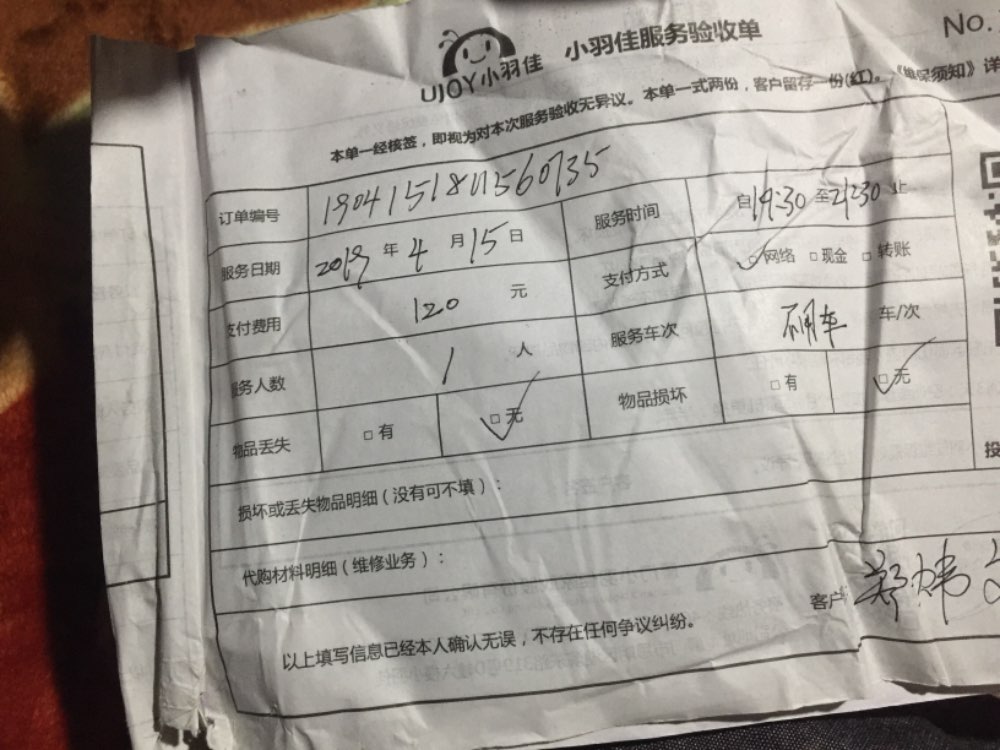 UJOY小羽佳 小羽佳服务验收单
No.
本单一经核签，即视为对本次服务验收无异议。本单一式两份，客户留存一份(红)。《维保须知》详
订单编号 19041518011560735 服务时间 自19:30至21:30止
服务日期 2019年4月15日 支付方式 □网络 □现金 □转账
支付费用 120元 服务车次 不用车 车/次
服务人数 1人 物品损坏 □有 □无
物品丢失 □有 □无
投
损坏或丢失物品明细（没有可不填）：
代购材料明细（维修业务）：
客户
以上填写信息已经本人确认无误，不存在任何争议纠纷。